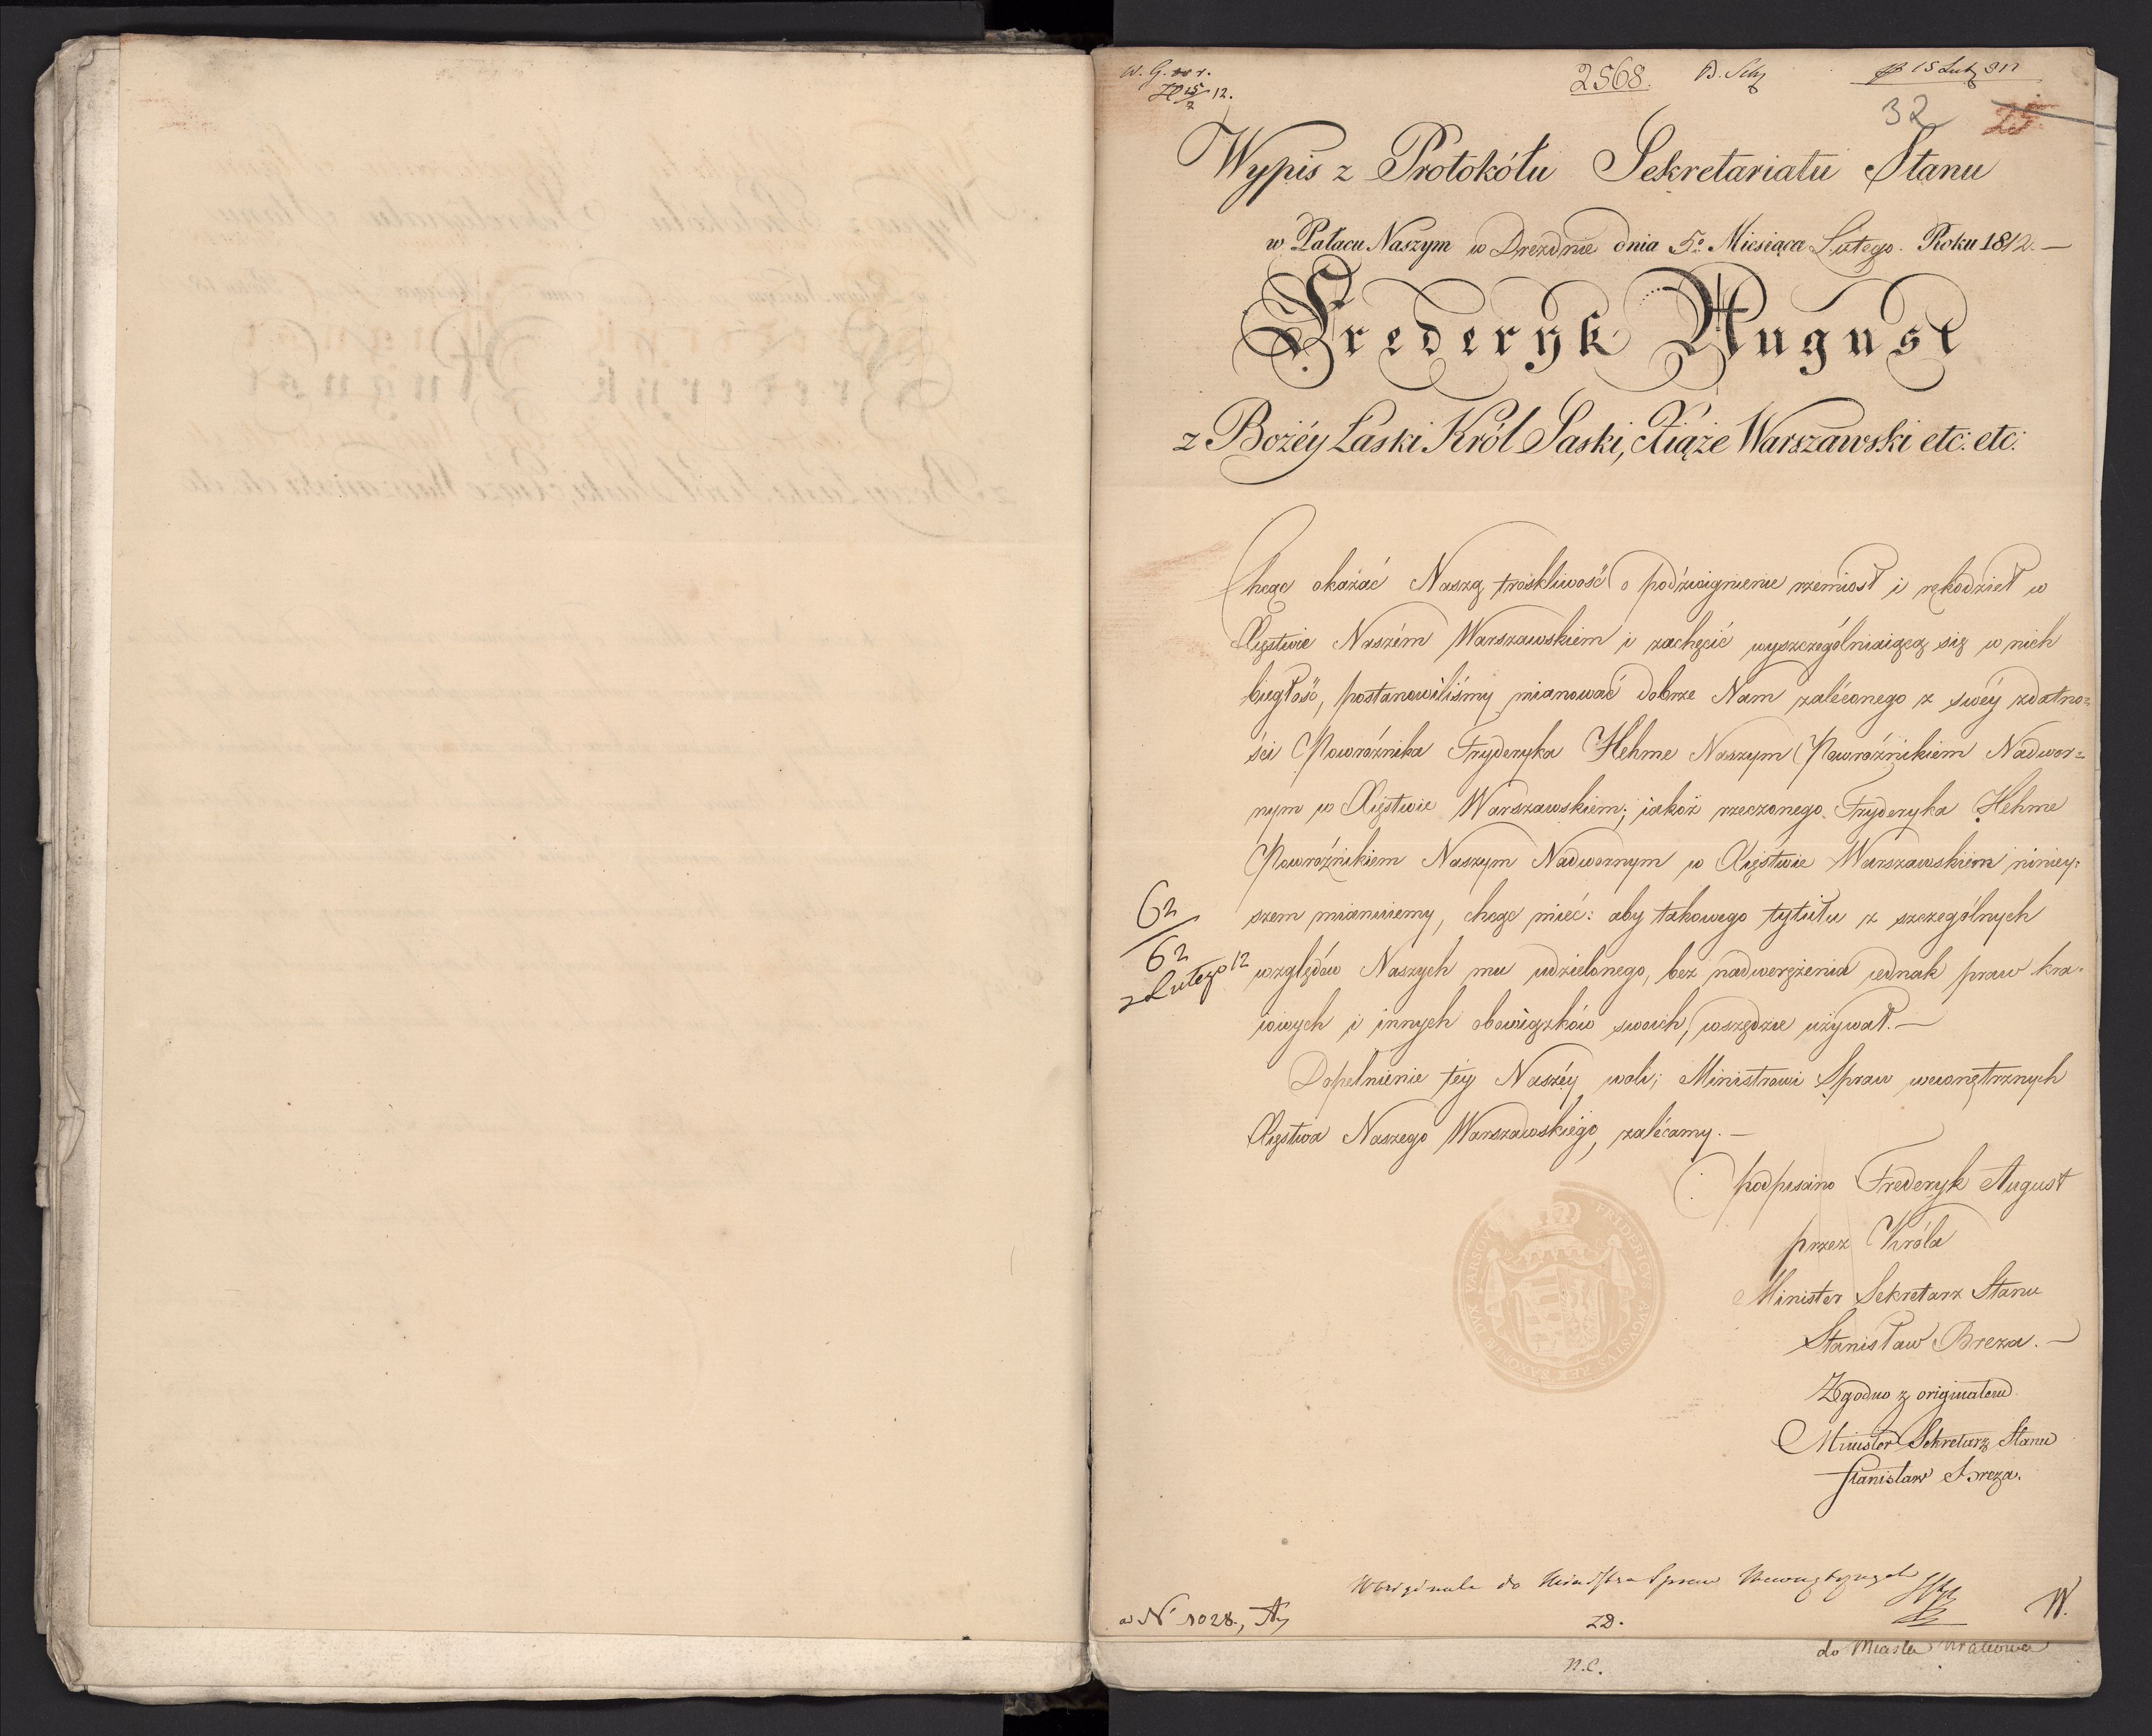 W. G.
2568.
15 Lut 812
32
25
Wypis z Protokółu Sekretariatu Stanu
w Pałacu Naszym w Dreznie dnia 5º Miesiąca Lutego Roku 1812.—
Frederyk August
z Bożéy Łaski Król Saski, Xiąże Warszawski etc: etc:
Chcąc okazać Naszą troskliwość o podźwignienie rzemiosł i rękodzieł w
Xięstwie Naszém Warszawskiem i zachęcić wyszczególniaiącą się w nich
biegłość, postanowiliśmy mianować dobrze Nam zaléconego z swéy zdatno=
ści Powroźnika Fryderyka Hehme Naszym Powroźnikiem Nadwor=
nym w Xięstwie Warszawskiem; iakoż rzeczonego Fryderyka Hehme
Powroźnikiem Naszym Nadwornym w Xięstwie Warszawskiem niniey=
szem mianuiemy, chcąc mieć: aby takowego tytułu z szczególnych
względów Naszych mu udzielonego, bez nadwerężenia iednak praw kra=
iowych i innych obowiązków swoich, wszędzie używał.—
Dopełnienie téy Naszéy woli; Ministrowi Spraw wewnętrznych
Xięstwa Naszego Warszawskiego, zalécamy.—
62
62
z Lutego 12
podpisano Frederyk August
przez Króla
Minister Sekretarz Stanu
Stanisław Breza.—
FRIDERICVS AVGVSTVS REX SAXONIAE DVX VARSOV
Zgodno z originałem
Minister Sekretarz Stanu
Stanisław Breza.
W originale do Ministra Spraw Wewnętrznych
N 1028.,
ZD.
W.
do Miasta Krakowa
n.c.